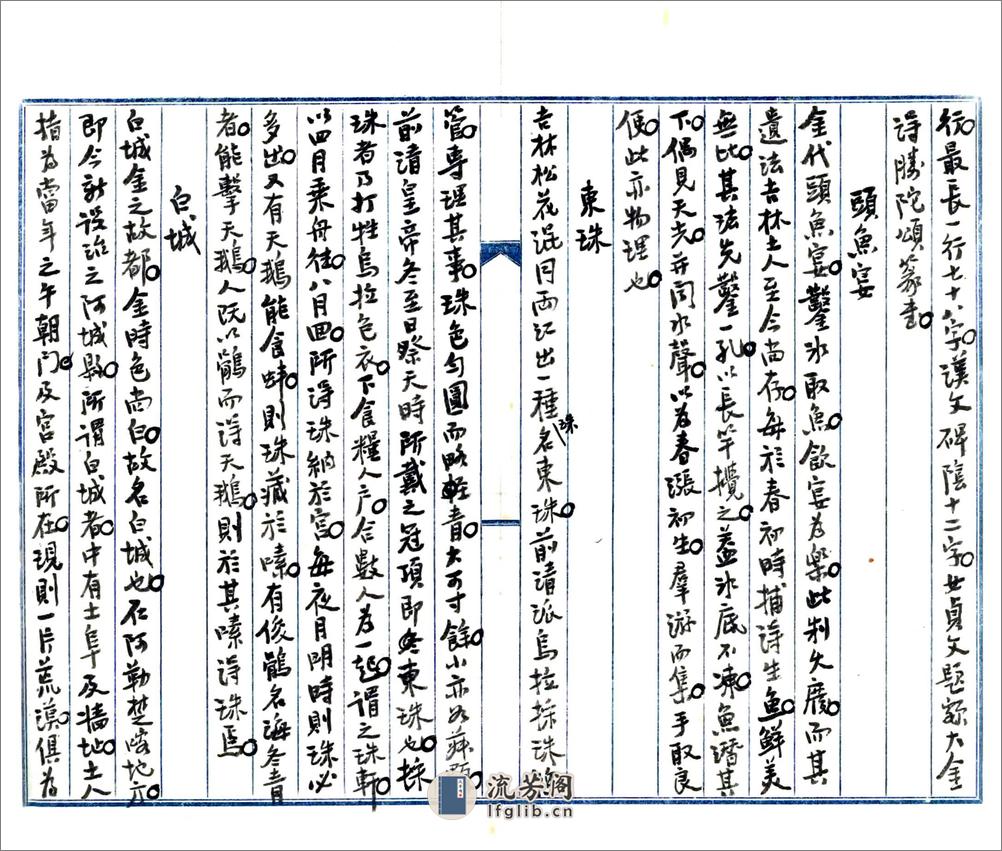 行。最長一行七十八字。漢文碑陰十二字。女貞文題額大金
得勝陀頌篆書。
頭魚宴
金代頭魚宴。鑿冰取魚。飲宴為樂。此制久廢。而其
遺法吉林土人至今尚存。每於春初時捕得生魚。鮮美
無比。其法先鑿一孔。以長竿攪之。蓋冰底不凍。魚潛其
下。偶見天光。并聞水聲。以為春漲初生。羣游而集。手取良
便。此亦物理也。
東珠
吉林松花混同兩江出一種珠名東珠。前清派烏拉採珠
管。專理其事。珠色勻圓而略輕青。大可寸餘。小亦如菽
前清皇帝冬至日祭天時所戴之冠項即此東珠也。採
珠者乃打牲烏拉包衣。下食糧人戶。合數人為一起。謂之珠軒。
以四月乘舟往。八月回。所得珠納於官。每夜月明時則珠必
多出。又有天鵝能食蚌。則珠藏於嗉。有俊鶻名海冬青
者。能擊天鵝。人既以鶻而得天鵝。則於其嗉得珠焉。
白城
白城金之故都。金時色尚白。故名白城也。在阿勒楚喀地方。
即今新設治之阿城縣。所謂白城者。中有土阜及墻址。土人
指為當年之午朝門。及宮殿所在。現則一片荒漠。俱為
流芳阁
lfglib.cn